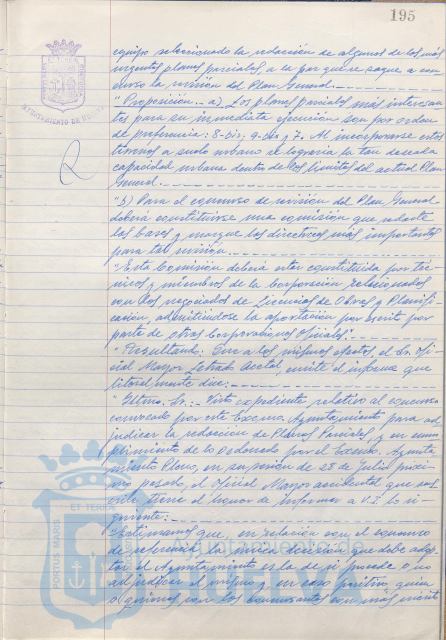 195
equipo seleccionado la redacción de algunos de los más
urgentes planes parciales, a la par que se saque a con-
curso la revisión del Plan General.
"Proposición.- a) Los planes parciales más interesan-
tes para su inmediata ejecución son por orden
de preferencia: 8-bis, 9-bis y 7. Al incorporarse estos
terrenos a suelo urbano se lograría la tan deseada
capacidad urbana dentro de los límites del actual Plan
General.
"b) Para el concurso de revisión del Plan General
deberá constituirse una comisión que redacte
las bases y marque las directrices más importantes
para tal revisión.
"Esta Comisión deberá estar constituida por téc-
nicos y miembros de la Corporación relacionados
con los negociados de Licencias de Obras y Planifi-
cación, admitiéndose la aportación por escrito por
parte de otras Corporaciones Oficiales".
"Resultando: Que a los mismos efectos, el Sr. Ofi-
cial Mayor Letrado Acctal, emite el informe que
literalmente dice:
"Iltmo. Sr.: Visto expediente relativo al concurso
convocado por este Excmo. Ayuntamiento para ad-
judicar la redacción de Planes Parciales, y en cum-
plimiento de lo ordenado por el Excmo. Ayunta-
miento Pleno, en su sesión de 28 de Julio próxi-
mo pasado, el Oficial Mayor accidental que sus-
cribe tiene el honor de informar a V.I. lo si-
guiente:
"Estimamos que, en relación con el concurso
de referencia, la única decisión que debe adop-
tar el Ayuntamiento es la de si procede o no
adjudicar el mismo y en caso positivo, quien
o quienes son los concursantes con más
PORTUS MARIS
ET TERRAE